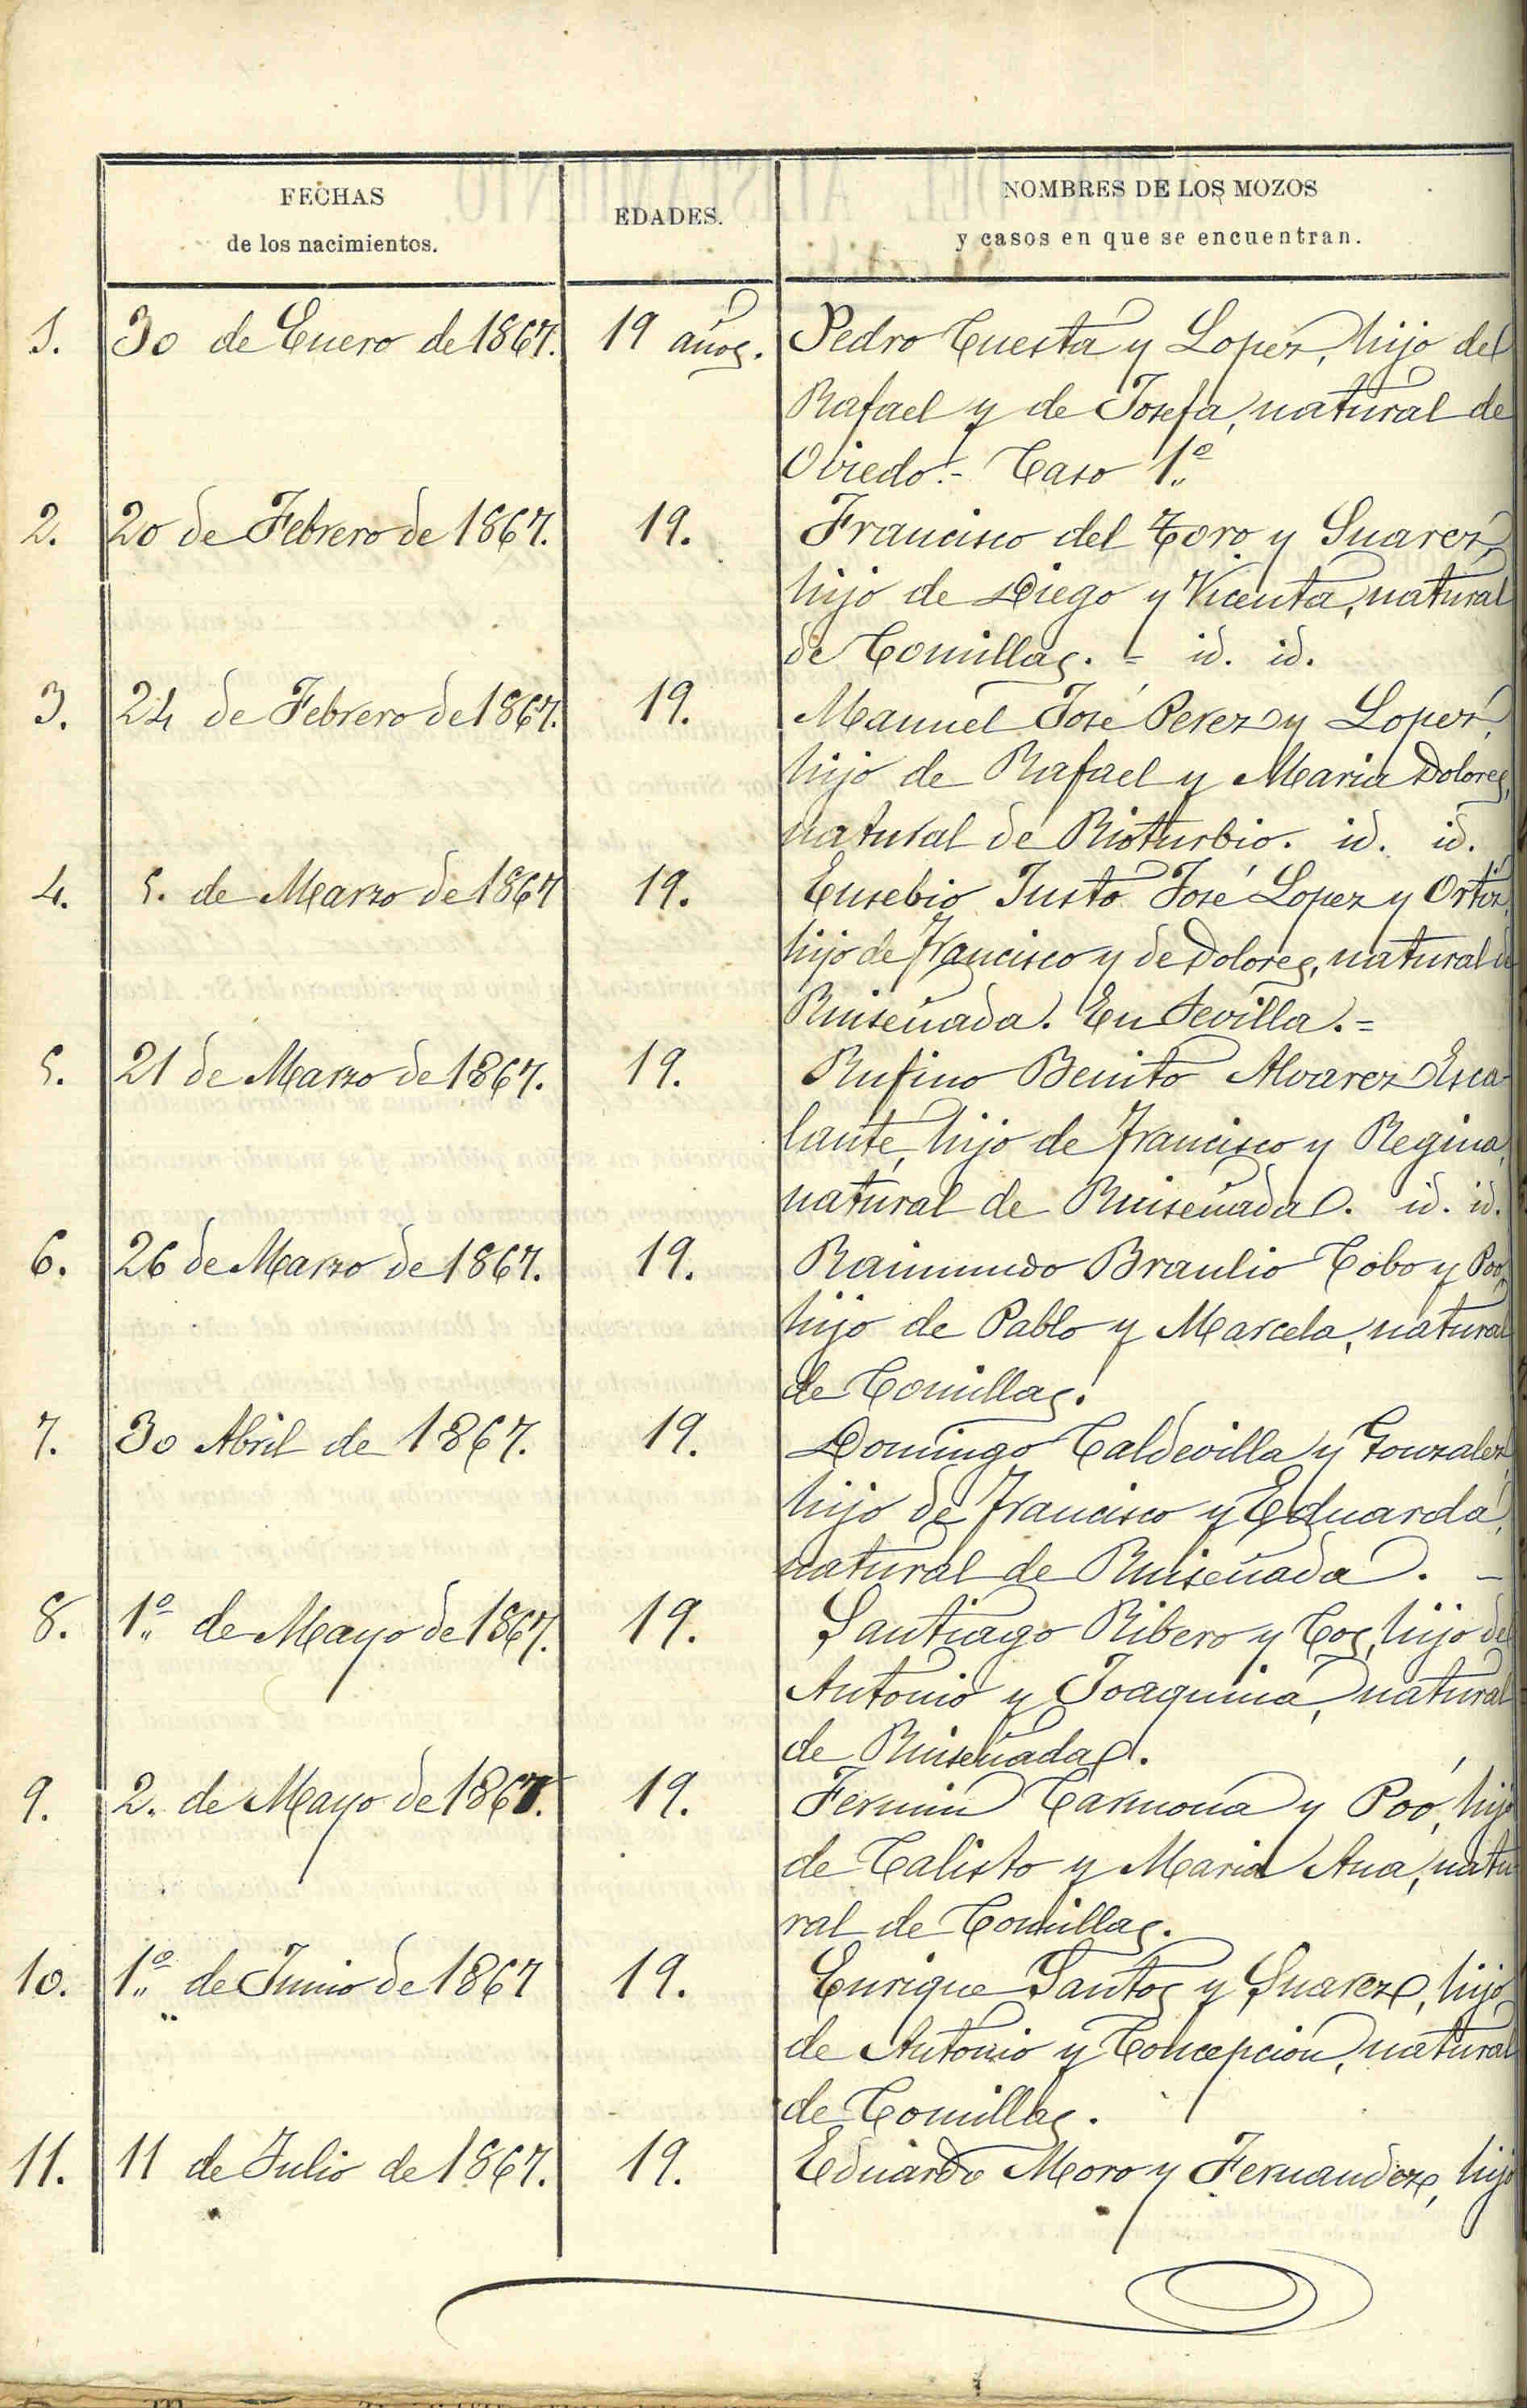 FECHAS
de los nacimientos.
EDADES.
NOMBRES DE LOS MOZOS
y casos en que se encuentran.
1. 30 de Enero de 1867. 19 años. Pedro Cuesta y Lopez, hijo de
Rafael y de Josefa, natural de
Oviedo.- Caso 1.º
2. 20 de Febrero de 1867. 19. Francisco del Toro y Suarez,
hijo de Diego y Vicenta, natural
de Comillas. = id. id.
3. 24 de Febrero de 1867. 19. Manuel José Perez y Lopez,
hijo de Rafael y Maria Dolores,
natural de Rioturbio. id. id.
4. 5. de Marzo de 1867 19. Eusebio Justo José Lopez y Ortiz,
hijo de Francisco y de Dolores, natural de
Ruiseñada. En Sevilla.=
5. 21 de Marzo de 1867. 19. Rufino Benito Alvarez Esca-
lante, hijo de Francisco y Regina,
natural de Ruiseñada. id. id.
6. 26 de Marzo de 1867. 19. Raimundo Braulio Cobo y Poo,
hijo de Pablo y Marcela, natural
de Comillas.
7. 30 Abril de 1867. 19. Domingo Caldevilla y Gonzalez,
hijo de Francisco y Eduarda,
natural de Ruiseñada. -
8. 1.º de Mayo de 1867. 19. Santiago Ribero y Cos, hijo de
Antonio y Joaquina, natural
de Ruiseñada.
9. 2. de Mayo de 1867. 19. Fermin Carmona y Poó, hijo
de Calisto y Maria Ana, natu
ral de Comillas.
10. 1.º de Junio de 1867 19. Enrique Santos y Suarez, hijo
de Antonio y Concepcion, natural
de Comillas.
11. 11 de Julio de 1867. 19. Eduardo Moro y Fernandez, hijo